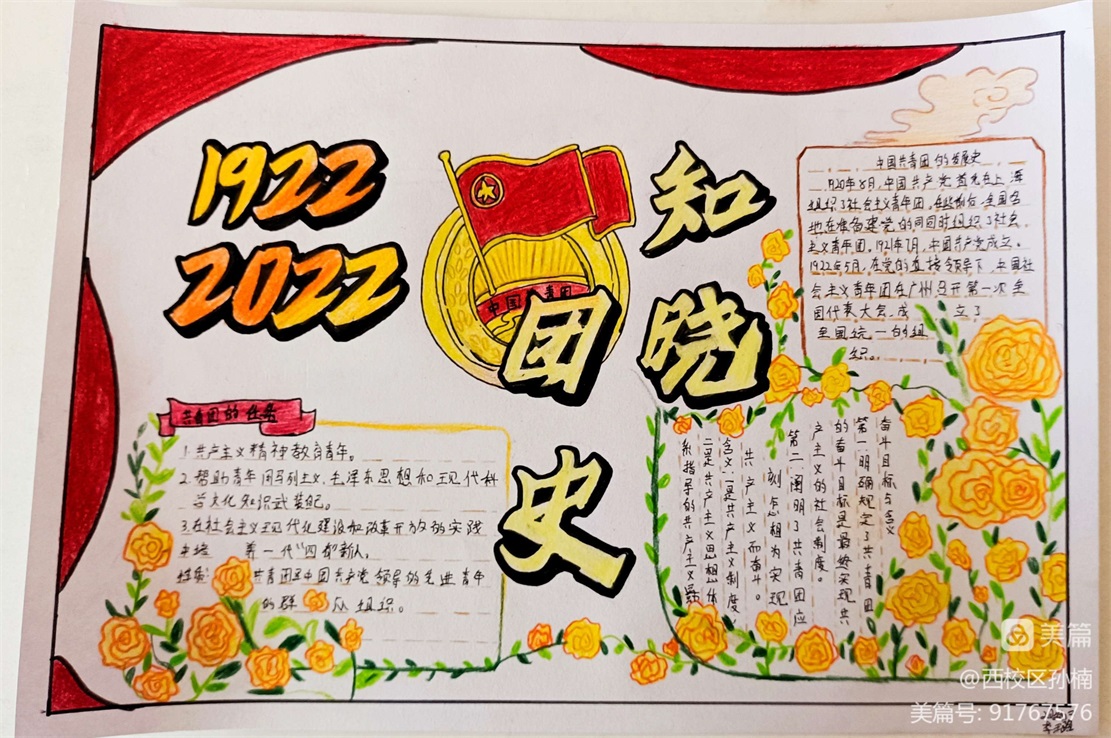 1922
2022
知晓
团史
中国共青团
中国共青团的发展史
1920年8月,中国共产党首先在上海
组织了社会主义青年团,在此前后,全国各
地在准备建党的同时组织了社会
主义青年团。1921年7月,中国共产党成立。
1922年5月,在党的直接领导下,中国社
会主义青年团在广州召开第一次全
国代表大会,成立了
全国统一的组
织。
共青团的任务
1.共产主义精神教育青年。
2.帮助青年用马列主义、毛泽东思想和现代科
学文化知识武装配。
3.在社会主义现代化建设和改革开放的实践
中培养一代“四有”新人。
性质 共青团是中国共产党领导的先进青年
的群 队组织。
奋斗目标与含义
第一明确规定了共青团
的奋斗目标是最终实现共
产主义的社会制度。
第二阐明了共青团应
时刻怎相为实现
共产主义而奋斗。
含义一是共产主义制度,
二是共产主义思想体
系指导的共产主义
美篇
@西校区孙楠
美篇号: 91767576